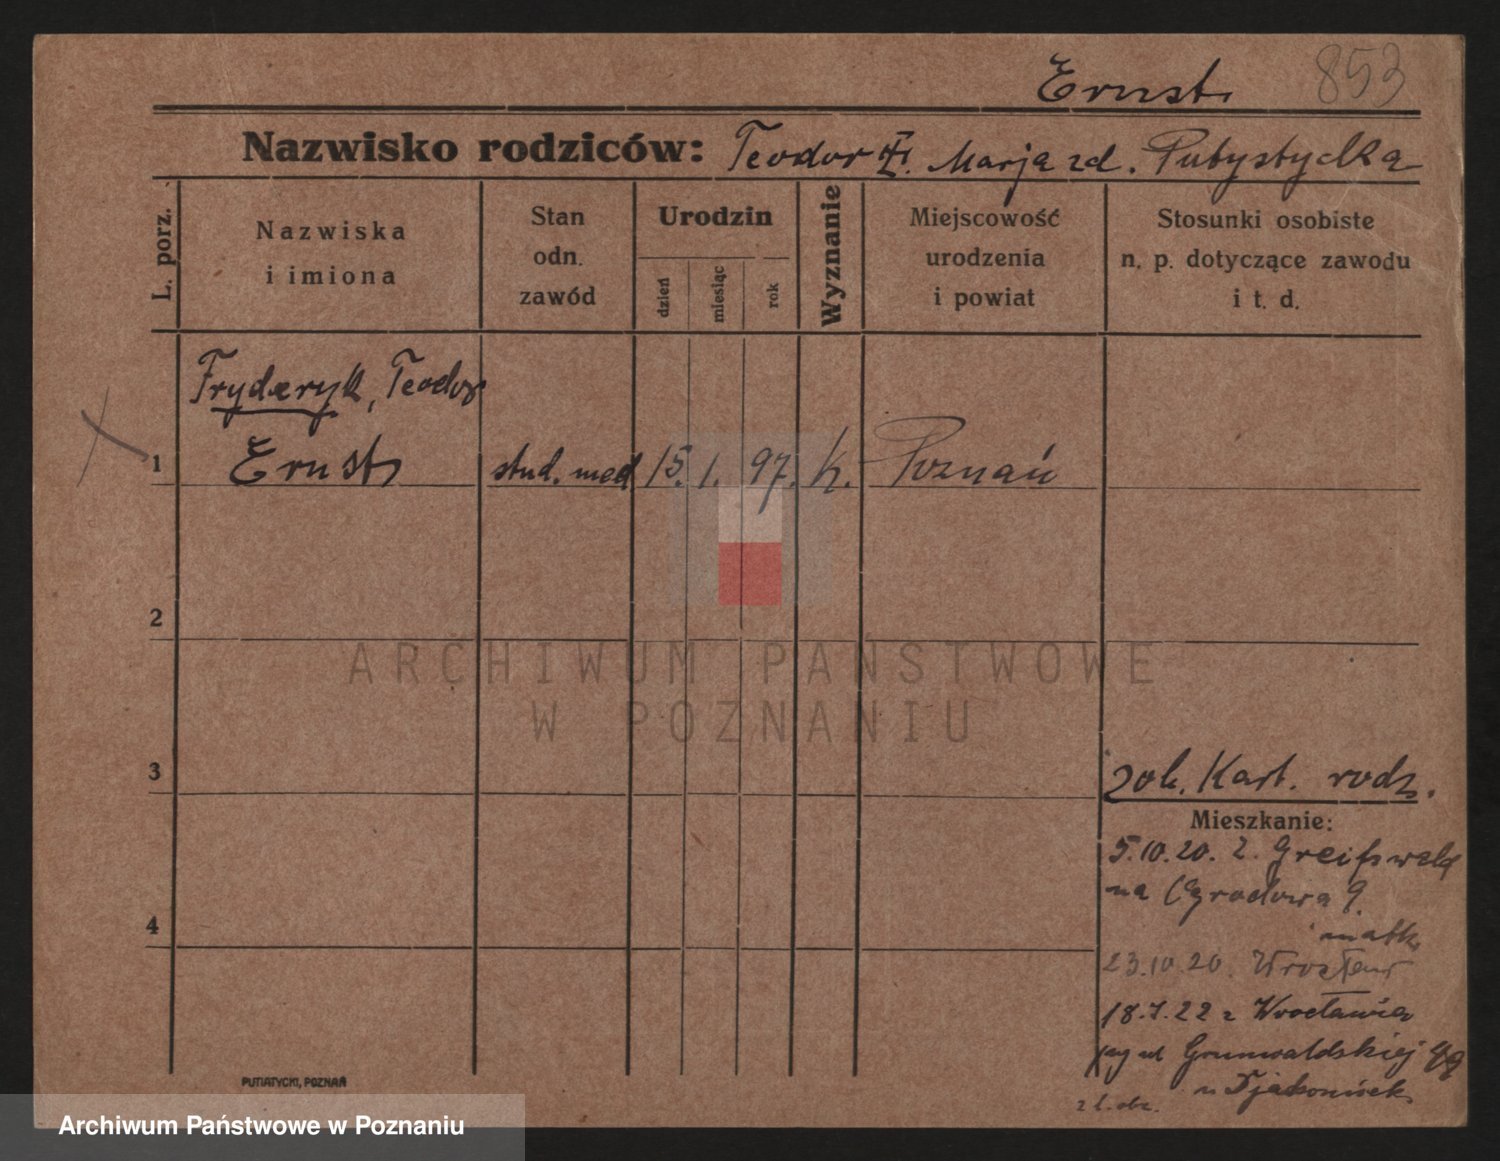 Ernst 853
Nazwisko rodziców: Teodor Marja zd.
L. porz.
Nazwiska
i imiona
Stan
odn.
zawód
Urodzin
dzień
miesiąc
rok
Wyznanie
Miejscowość
urodzenia
i powiat
Stosunki osobiste
n. p. dotyczące zawodu
i t. d.
Fryderyk, Teodor
1 Ernst stud. med. 15. 1. 97. k. Poznań
2
ARCHIWUM PAŃSTWOWE
W POZNANIU
3
zob. Kart. rodz.
Mieszkanie:
5.10.20. z Greifswald
na Ogrodowa 9.
matk.
4
23.10.20. Wrocław
18.7.22 z Wrocławia
Grunwaldskiej
u
PUTIATYCKI, POZNAŃ
Archiwum Państwowe w Poznaniu